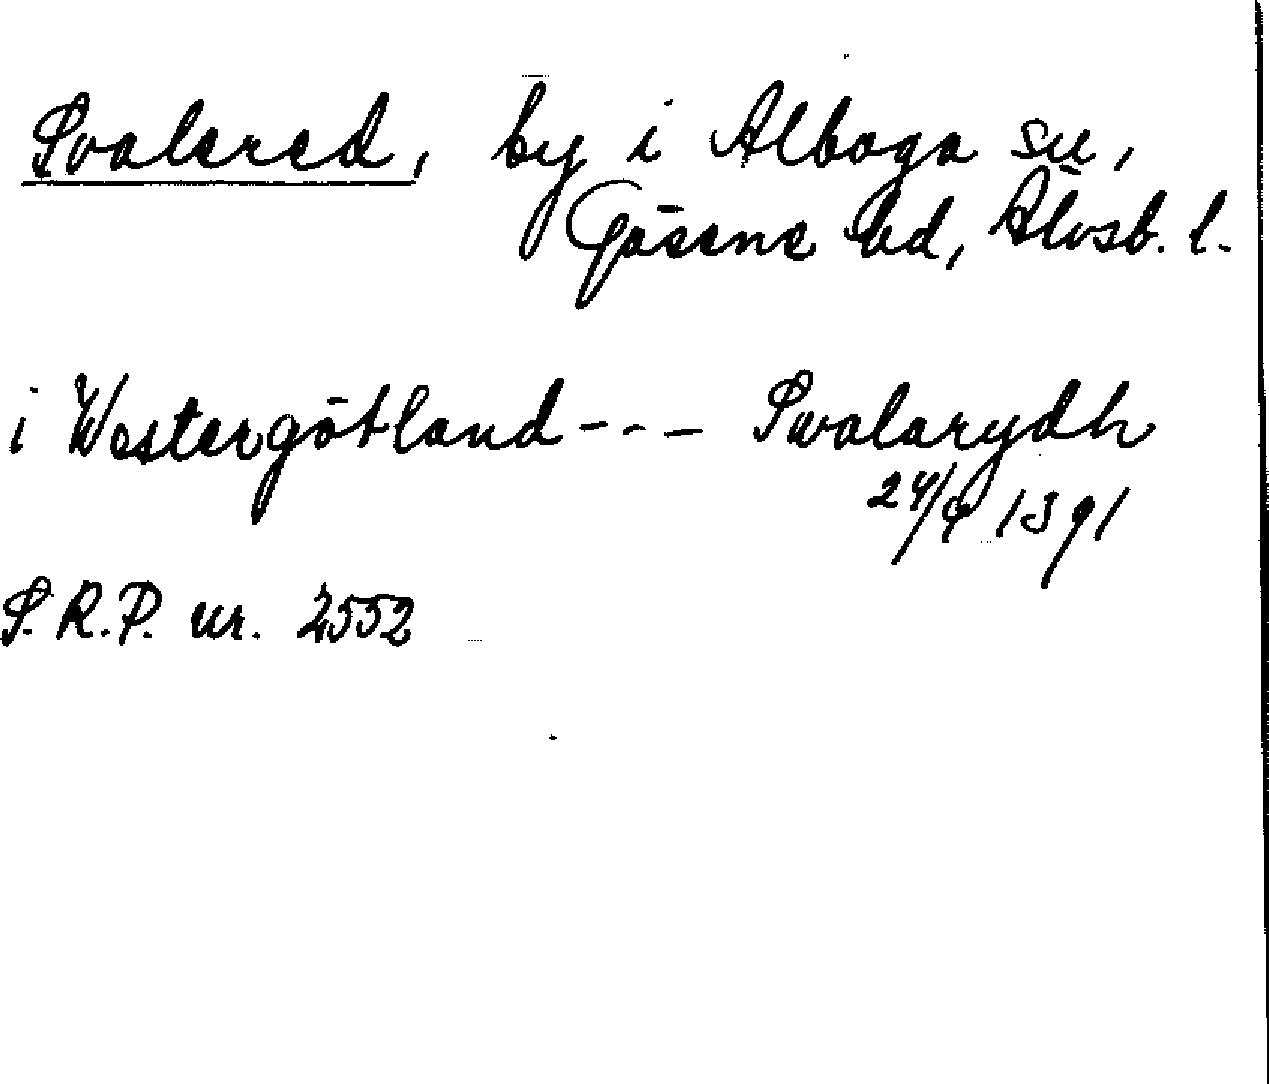 Svalered, by i Alboga sn,
Gäsene hd, Älvsb. l.
i Westergötland --- Swalarydh
24/4 1391
S.R.P. nr. 2552